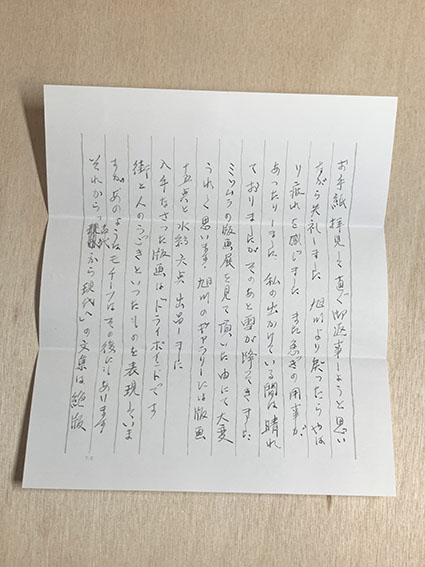 お手紙拝見して直ぐ御返事しようと思い
ながら失礼しました 旭川より戻ったらやは
り疲れを感じました また急ぎの用事が
あったりしました 私の出かけている間は晴れ
ておりましたがそのあと雪が降ってきました
ミツムラの版画展を見て頂いた由にて大変
うれしく思います。旭川のギャラリーには版画
十五点と水彩六点出品しました
入手なさった版画は「ドライポイント」です
街と人のうごきといったものを表現していま
すがあのようなモチーフはその後にもあります
それから「古代から現代へ」の文集は絶版